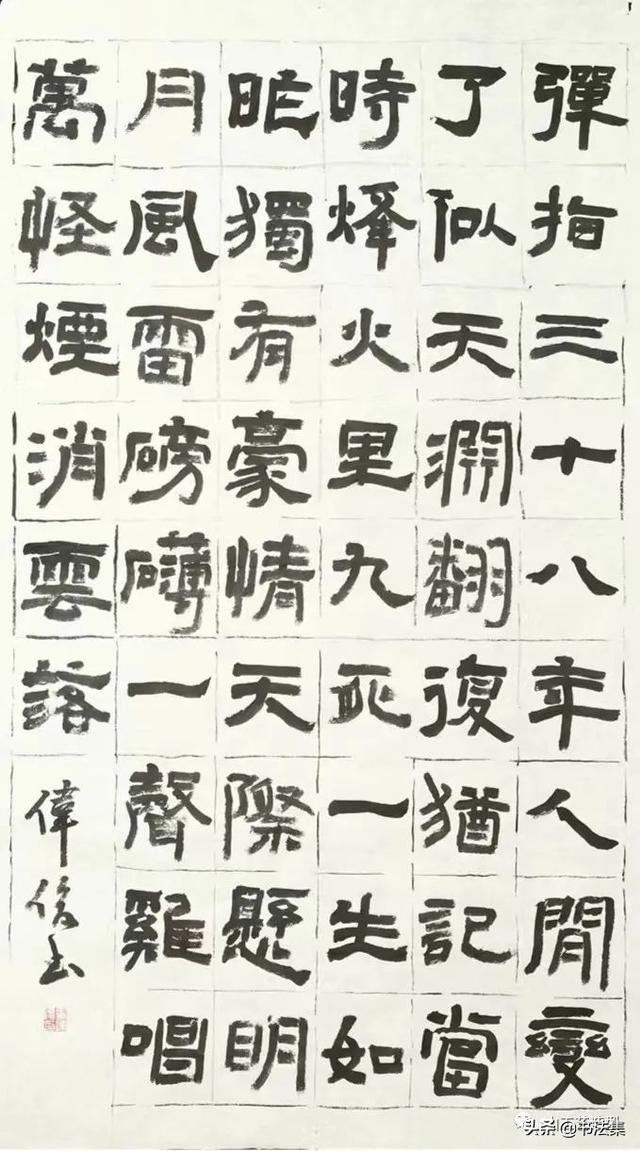 彈指三十八年人間變
了似天淵翻復猶記當
時烽火里九死一生如
昨獨有豪情天際懸明
月風雷磅礴一聲雞唱
萬怪煙消雲落
偉
头条 @书法集